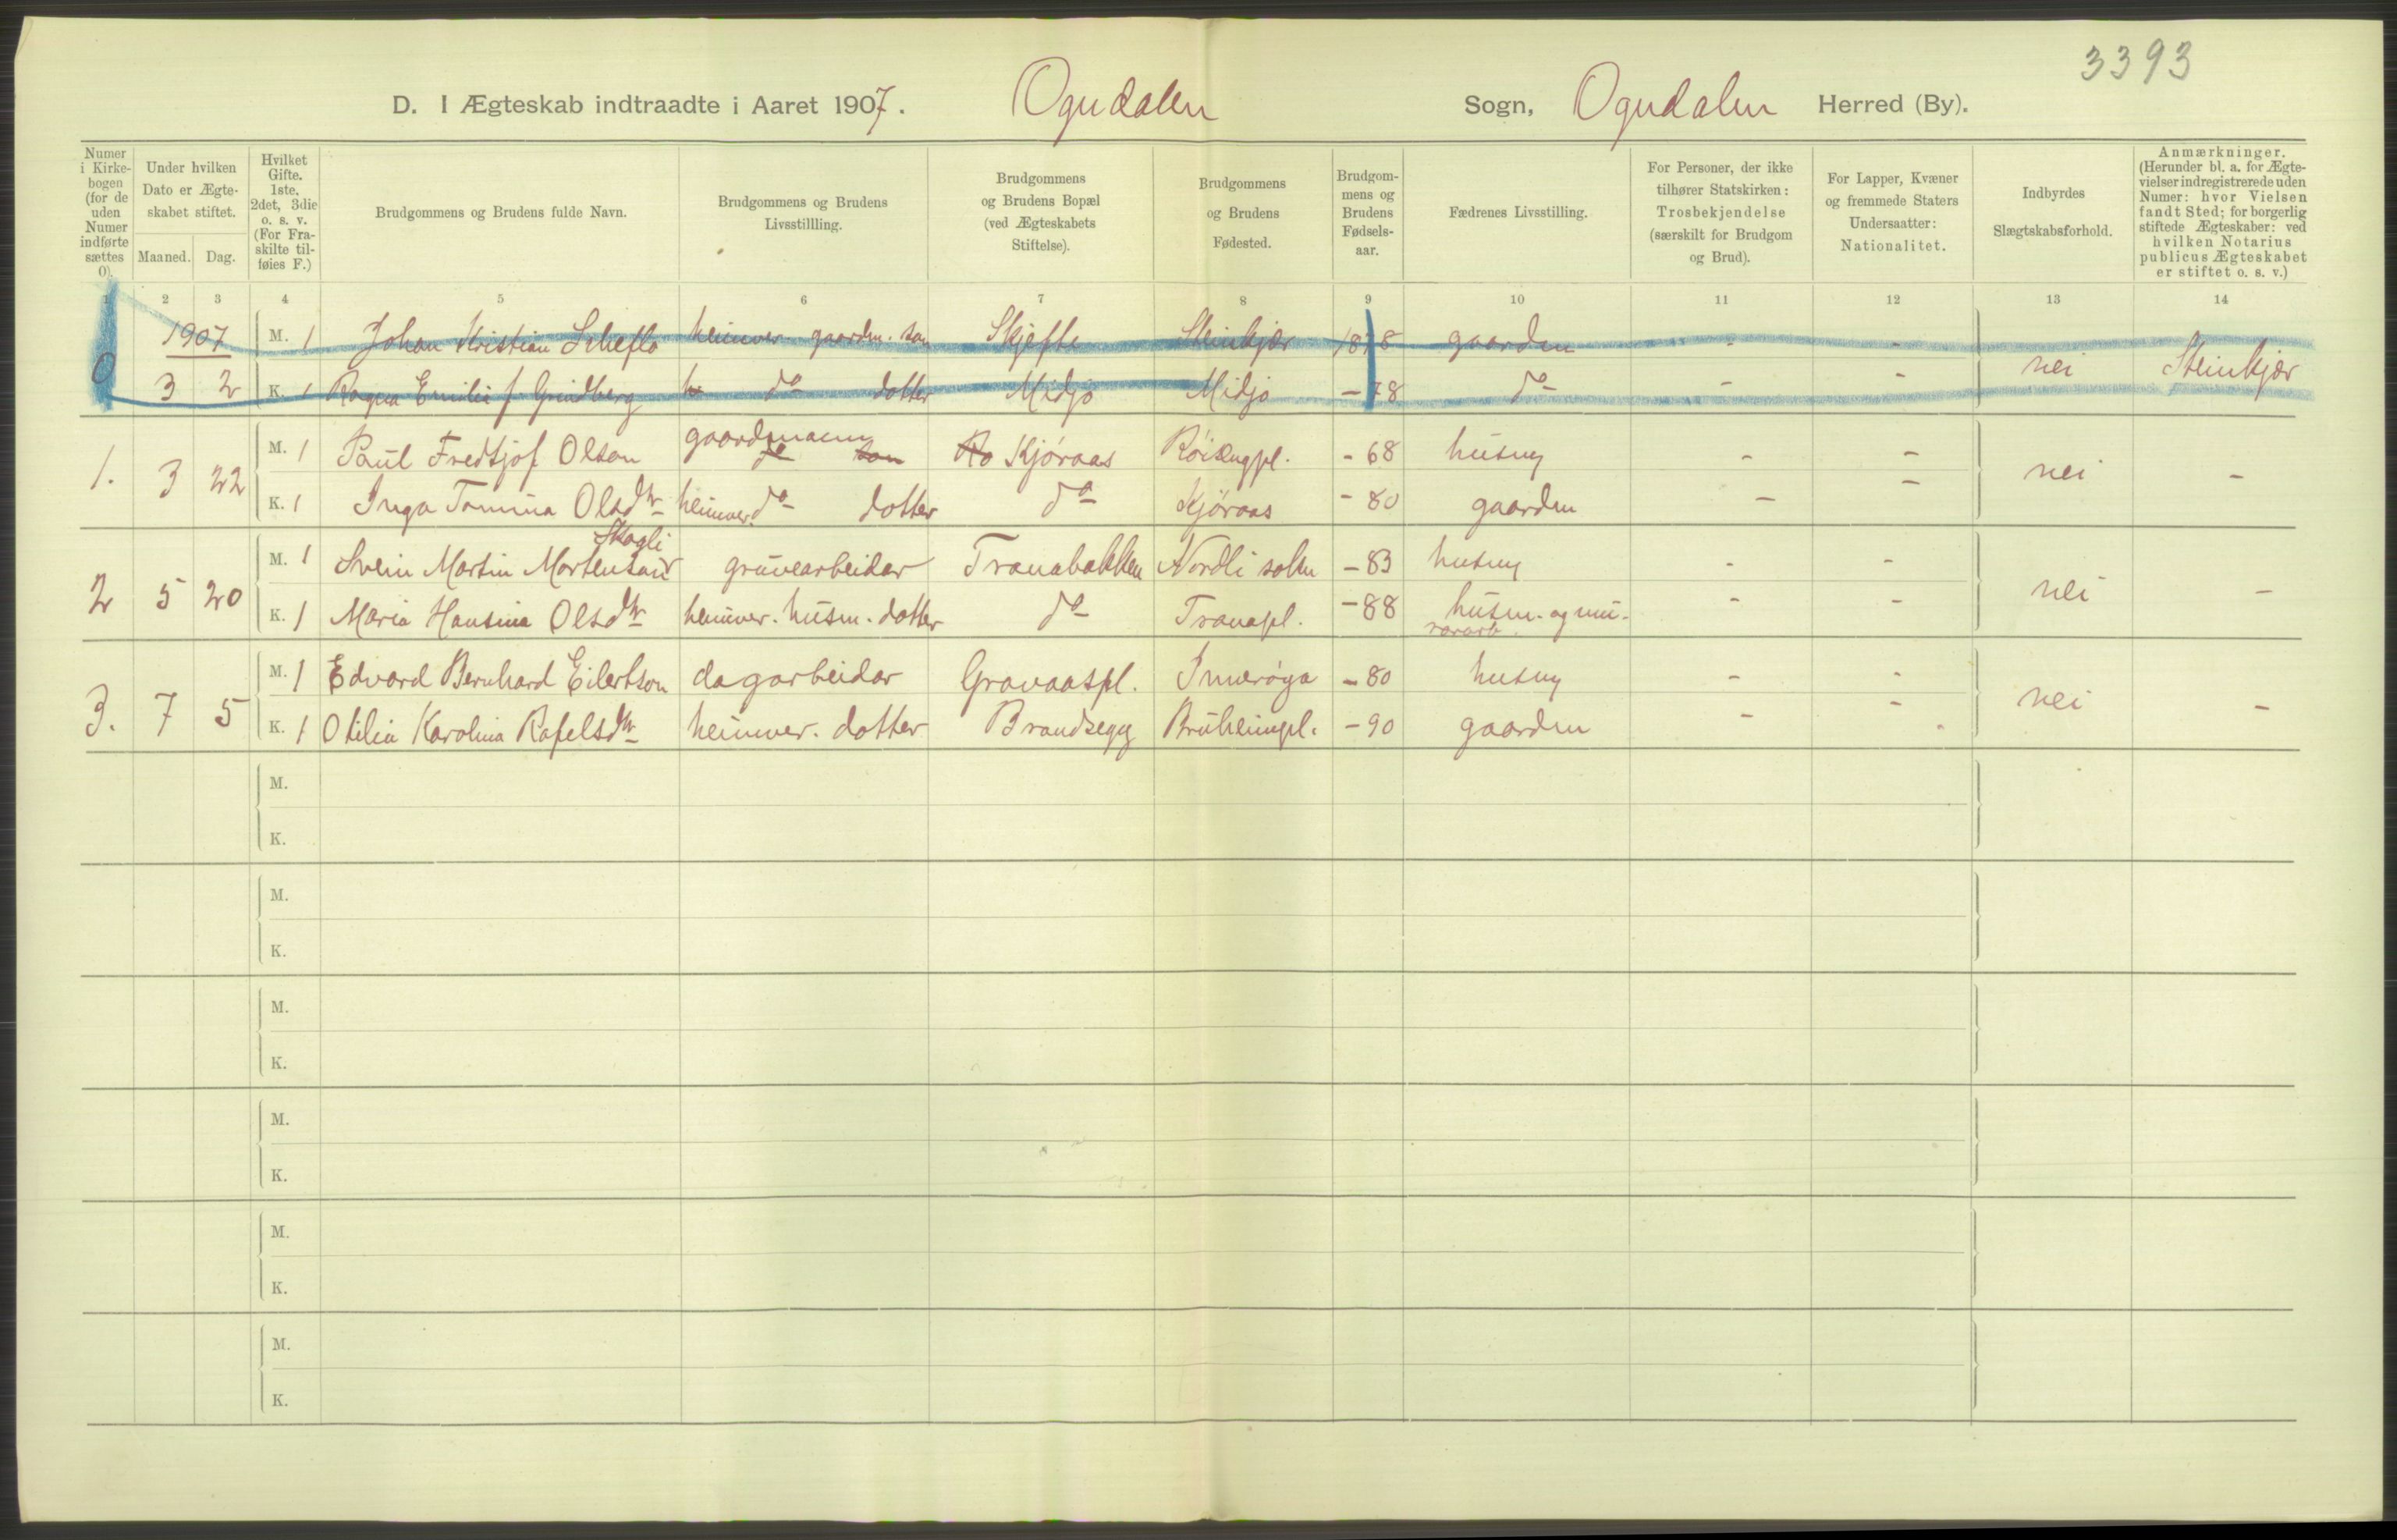 3393
D. I Ægteskab indtraadte i Aaret 1907. Ogndalen Sogn, Ogndalen Herred (By).
Numer i Kirkebogen (for de uden Numer indførte sættes 0).
Under hvilken Dato er Ægteskabet stiftet.
Maaned. Dag.
Hvilket Gifte. 1ste, 2det, 3die o. s. v. (For Fraskilte tilføies F.)
Brudgommens og Brudens fulde Navn.
Brudgommens og Brudens Livsstillling.
Brudgommens og Brudens Bopæl (ved Ægteskabets Stiftelse).
Brudgommens og Brudens Fødested.
Brudgommens og Brudens Fødselsaar.
Fædrenes Livsstilling.
For Personer, der ikke tilhører Statskirken: Trosbekjendelse (særskilt for Brudgom og Brud).
For Lapper, Kvæner og fremmede Staters Undersaatter: Nationalitet.
Indbyrdes Slægtskabsforhold.
Anmærkninger. (Herunder bl. a. for Ægtevielser indregistrerede uden Numer: hvor Vielsen fandt Sted; for borgerlig stiftede Ægteskaber: ved hvilken Notarius publicus Ægteskabet er stiftet o. s. v.)
1 2 3 4 5 6 7 8 9 10 11 12 13 14
1907 M. 1 Johan Kristian Scheflo heimver. gaardm. son Skjefte Steinkjær 1878 gaardm - -
0 3 2 K. 1 Ragna Emilie f Grindberg h do dotter Midjo Midjo -78 do - - nei Steinkjær
M. 1 Paul Fredtjof Olson gaardmann do son Ro Kjøraas Røisengpl. -68 husm - -
1. 3 22 K. 1 Inga Tomina Olsdtr heimver. do dotter do Kjøraas -80 gaardm - - nei -
Skogli
M. 1 Svein Martin Mortenson gruvearbeidar Tranabakken Nordli sokn -83 husm - -
2 5 20 K. 1 Maria Hansina Olsdtr heimver. husm. dotter do Tranapl. -88 husm. og mu- - - nei -
rararb.
M. 1 Edvard Bernhard Eilertson dagarbeidar Gravaaspl. Inderøya -80 husm - -
3. 7 5 K. 1 Otilia Karolina Rafelsdtr heimver. dotter Brandsegg Bruheimpl. -90 gaardm - - nei -
M.
K.
M.
K.
M.
K.
M.
K.
M.
K.
M.
K.